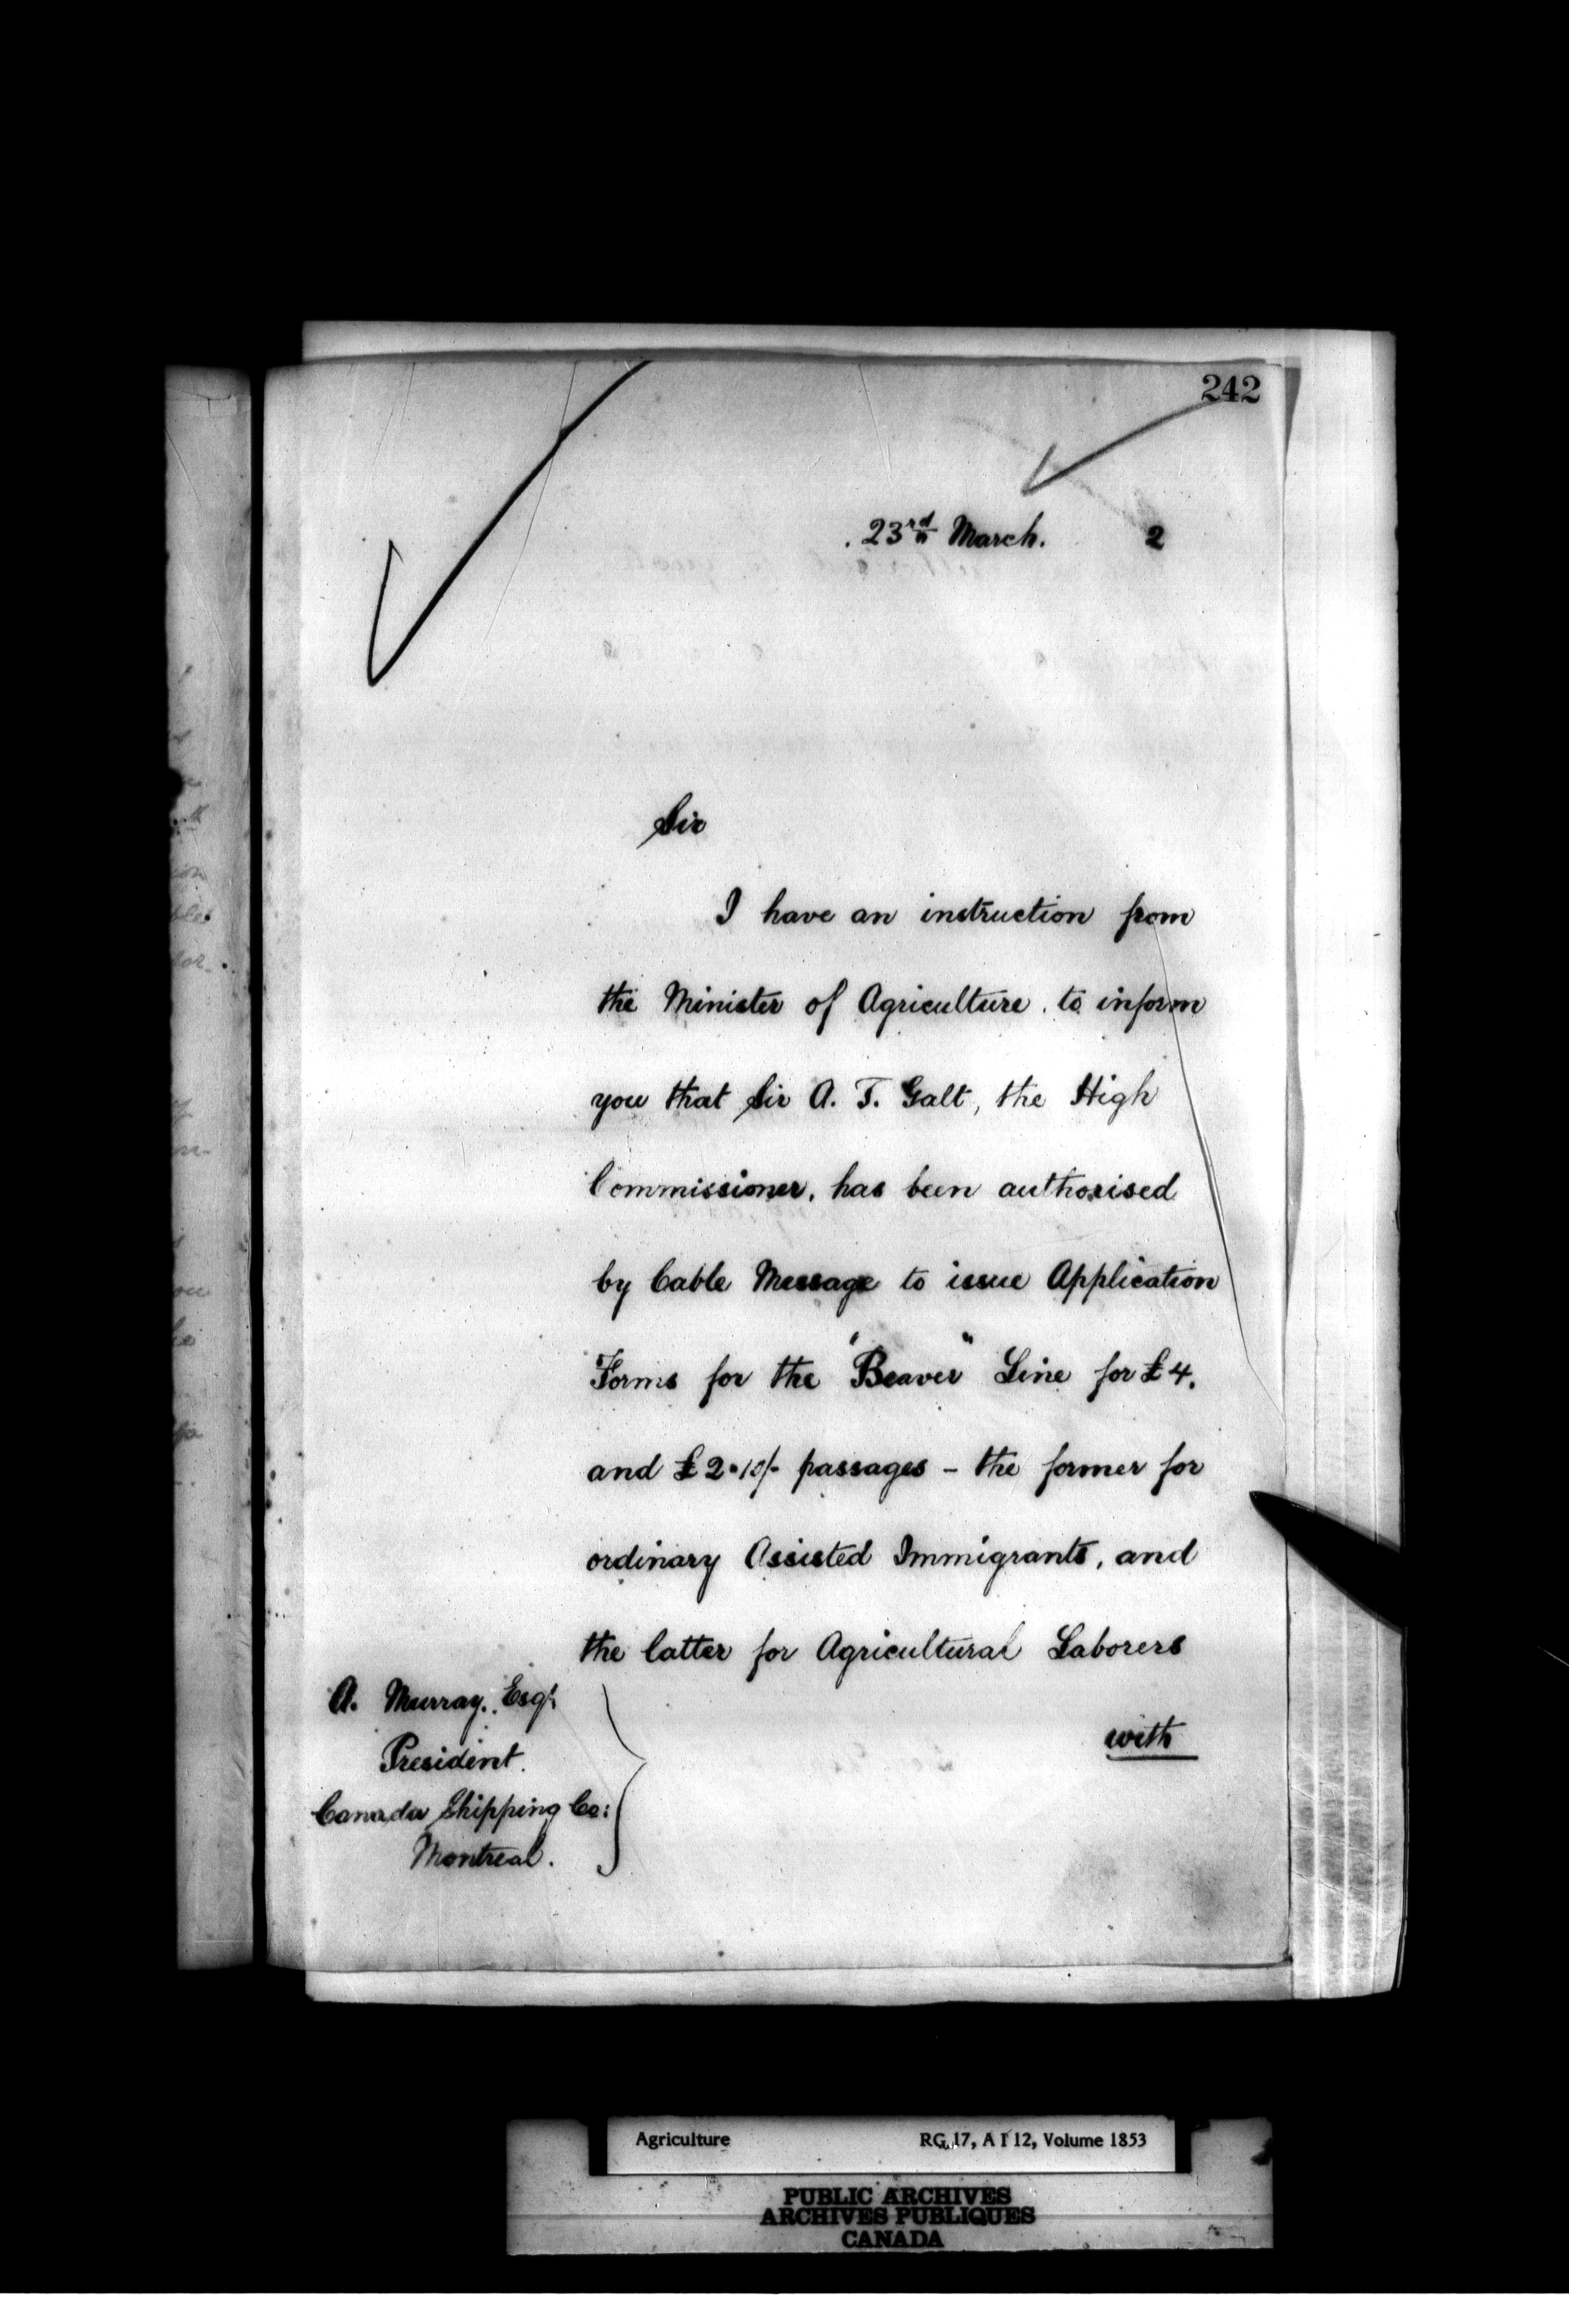 242
23rd March. 2
Sir
I have an instruction from
the Minister of Agriculture. to inform
you that Sir A. T. Galt, the High
Commissioner, has been authorised
by Cable Message to issue Application
Forms for the "Beaver" Line for £4.
and £2.10/- passages - the former for
ordinary Assisted Immigrants, and
the latter for Agricultural Laborers
with
A. Murray. Esqr.
President.
Canada Shipping Co:
Montreal.
Agriculture RG 17, A I 12, Volume 1853
PUBLIC ARCHIVES
ARCHIVES PUBLIQUES
CANADA